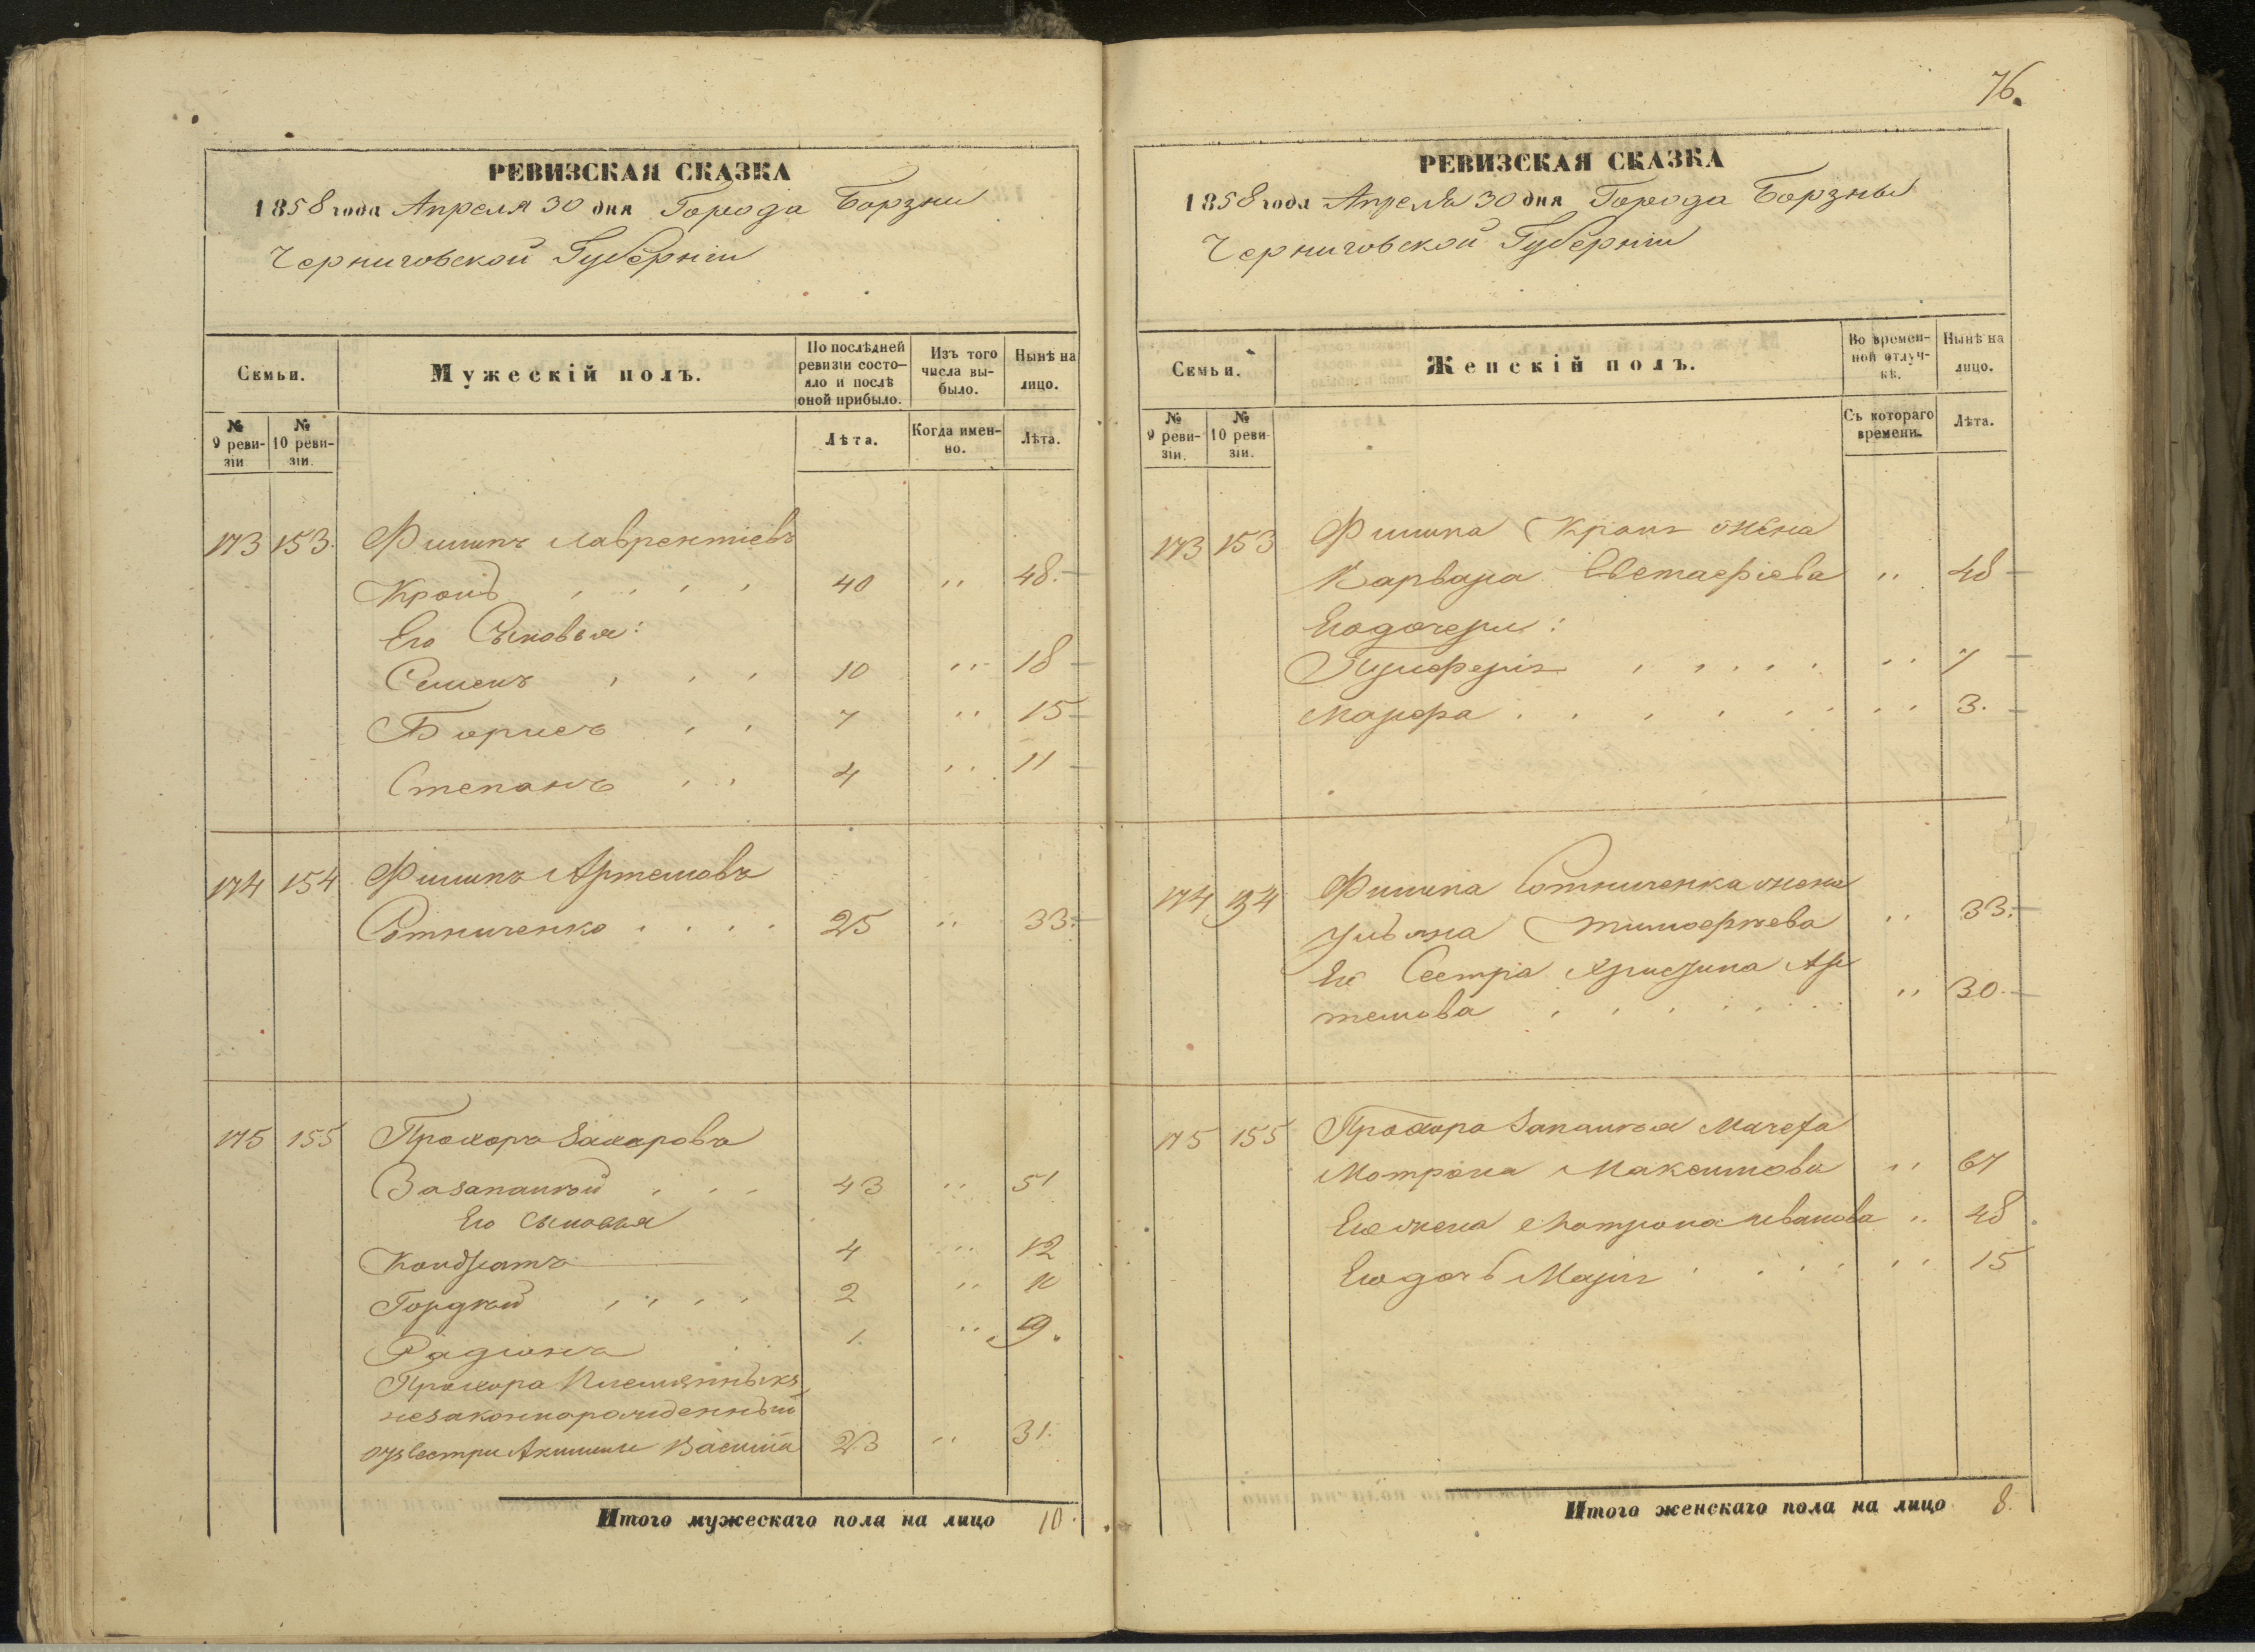 РЕВИЗСКАЯ СКАЗКА
1858 года Апреля 30 дня Города Борзни
Черниговской Губерніи
Семьи.
Мужескій полъ.
По послѣдней ревизіи состояло и послѣ оной прибыло.
Изъ того числа выбыло.
Нынѣ на лицо.
№ 9 ревизіи.
№ 10 ревизіи.
Лѣта.
Когда именно.
Лѣта.
173 153. Филипъ Лаврентіевъ
40 " 48.
Его Сыновья:
Семенъ 10 " 18
Борисъ 7 " 15
Степанъ 4 " 11
174 154 Филипъ Артемовъ
Сотниченко 25 " 33.
175 155 Прохоръ Захаровъ
43 " 51
Его сыновья
Кондратъ 4 " 12
Гордѣй 2 "
Радіонъ 1. " 9.
Прохора Племянныкъ
незаконнорожденный
отъ Сестри Акилины Василій 23 " 31.
Итого мужескаго пола на лицо 10.
76.
РЕВИЗСКАЯ СКАЗКА
1858 года Апреля 30 дня Города Борзны
Черниговской Губерніи
Семьи.
Женскій полъ.
Во временной отлучкѣ.
Нынѣ на лицо.
№ 9 ревизіи.
№ 10 ревизіи.
Съ котораго времени.
Лѣта.
173 153 Филипа жена
Варвара Евстафіева " 48
Его дочери:
" 7
Марфа " 3.
174 Филипа Сотниченка жена
Ульяна Тимофѣева " 33.
Его Сестра Христина Ар
темова " 30.
175 155 Прохора Мачеха
Мотрона Максимова " 67
Его жена Мотрона Иванова " 48
Его дочь Марія " 15
Итого женскаго пола на лицо 8.